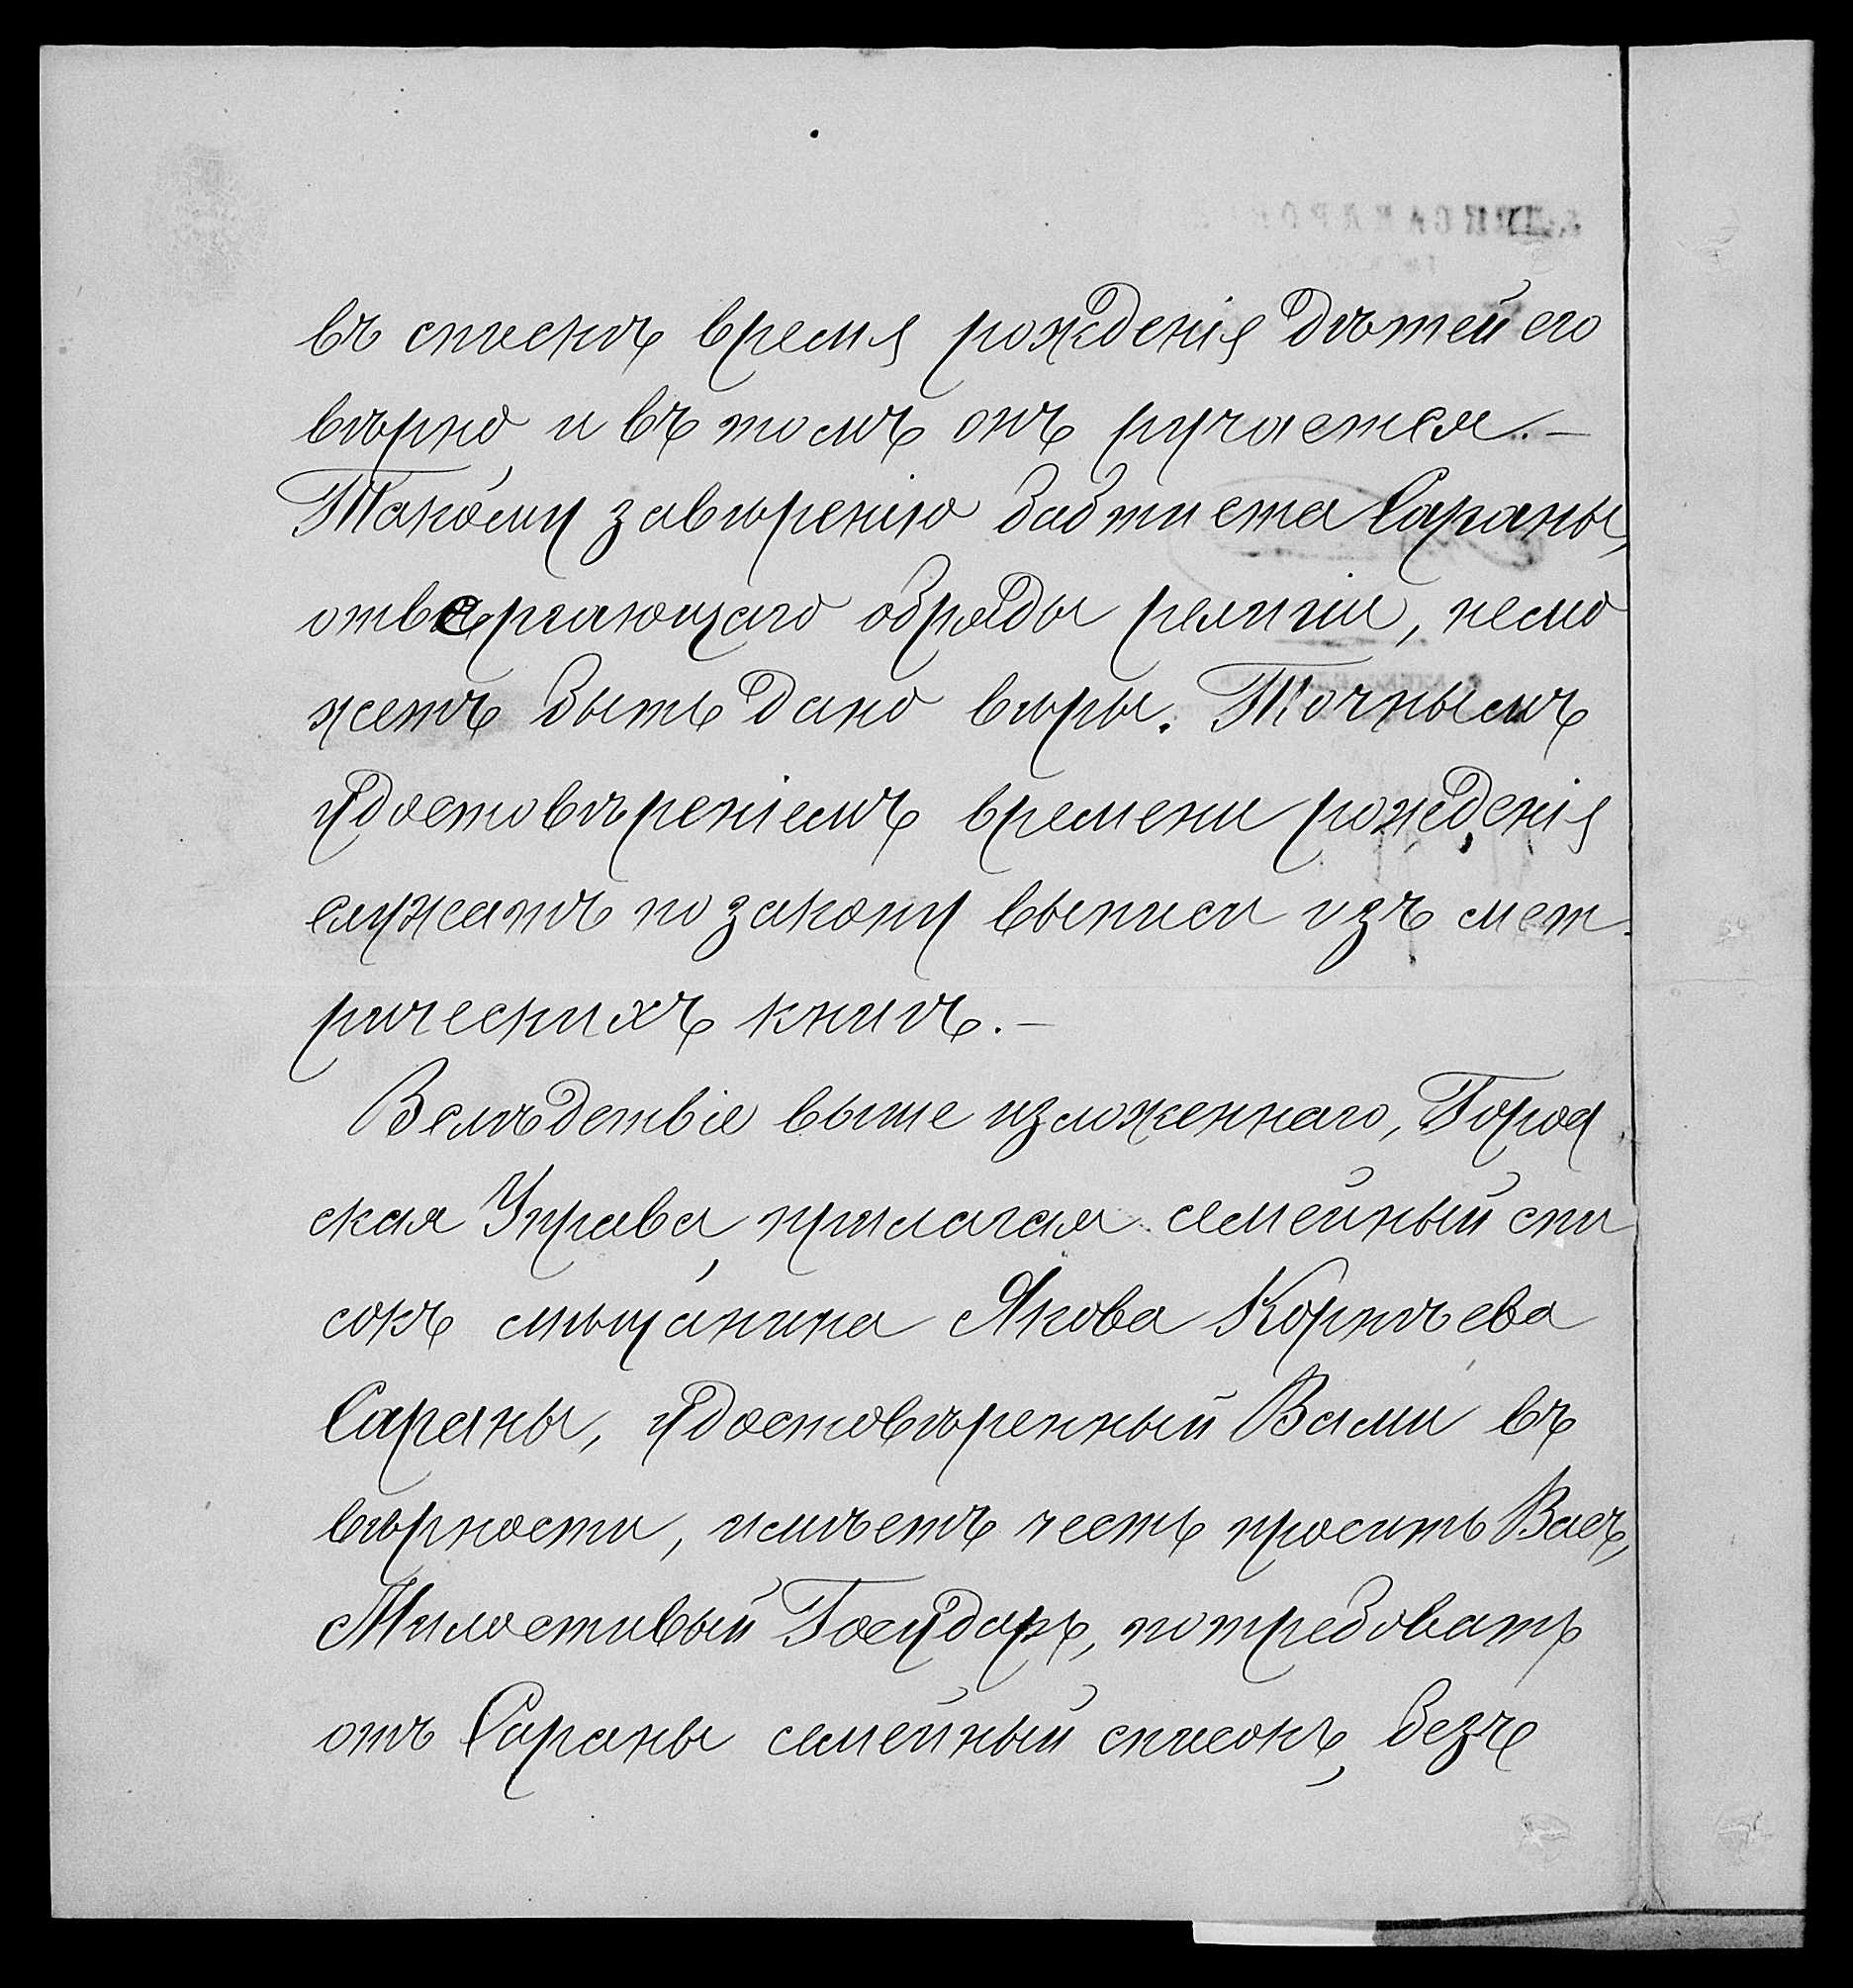 въ спискѣ время рожденія дѣтей его
вѣрно и въ томъ онъ ручается.—
Такому завѣренію баптиста Сараны,
отвергающаго обряды религіи, немо
жетъ быть дано вѣры. Точнымъ
удостовѣреніемъ времени рожденія
служатъ по закону выписи изъ мет
рическихъ книгъ.—
Вслѣдствіе выше изложеннаго, Город
ская Управа, прилагая семейный спи
сокъ мѣщанина Якова Корнѣева
Сараны, удостовѣренный Вами въ
вѣрности, имѣетъ честь просить Васъ,
Милостивый Государь, потребовать
отъ Сараны семейный списокъ, безъ